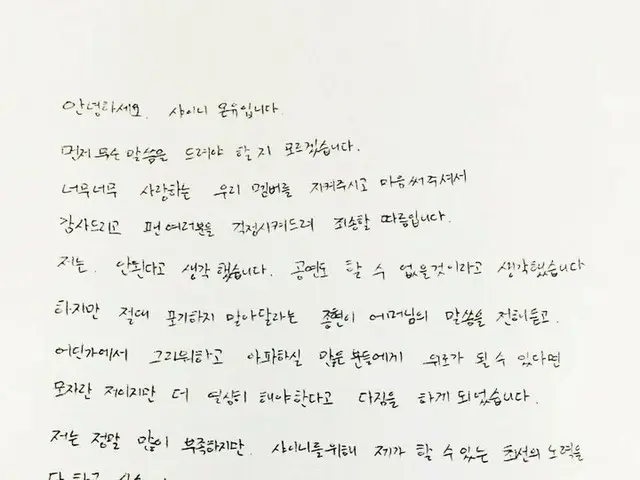 안녕하세요. 샤이니 온유입니다.
먼저 무슨 말씀을 드려야 할지 모르겠습니다.
너무너무 사랑하는 우리 멤버를 지켜주시고 마음써주셔서
감사드리고 팬여러분을 걱정시켜드려 죄송할 따름입니다.
저는. 안된다고 생각했습니다. 공연도 할 수 없을것이라고 생각했습니다
하지만 절대 포기하지 말아달라는 종현이 어머님의 말씀을 전해듣고.
어딘가에서 그리워하고 아파하실 많은 분들에게 위로가 될 수 있다면
모자란 저이지만 더 열심히 해야한다고 다짐을 하게 되었습니다.
저는 정말 많이 부족하지만. 샤이니를위해 제가 할 수 있는 최선의 노력을